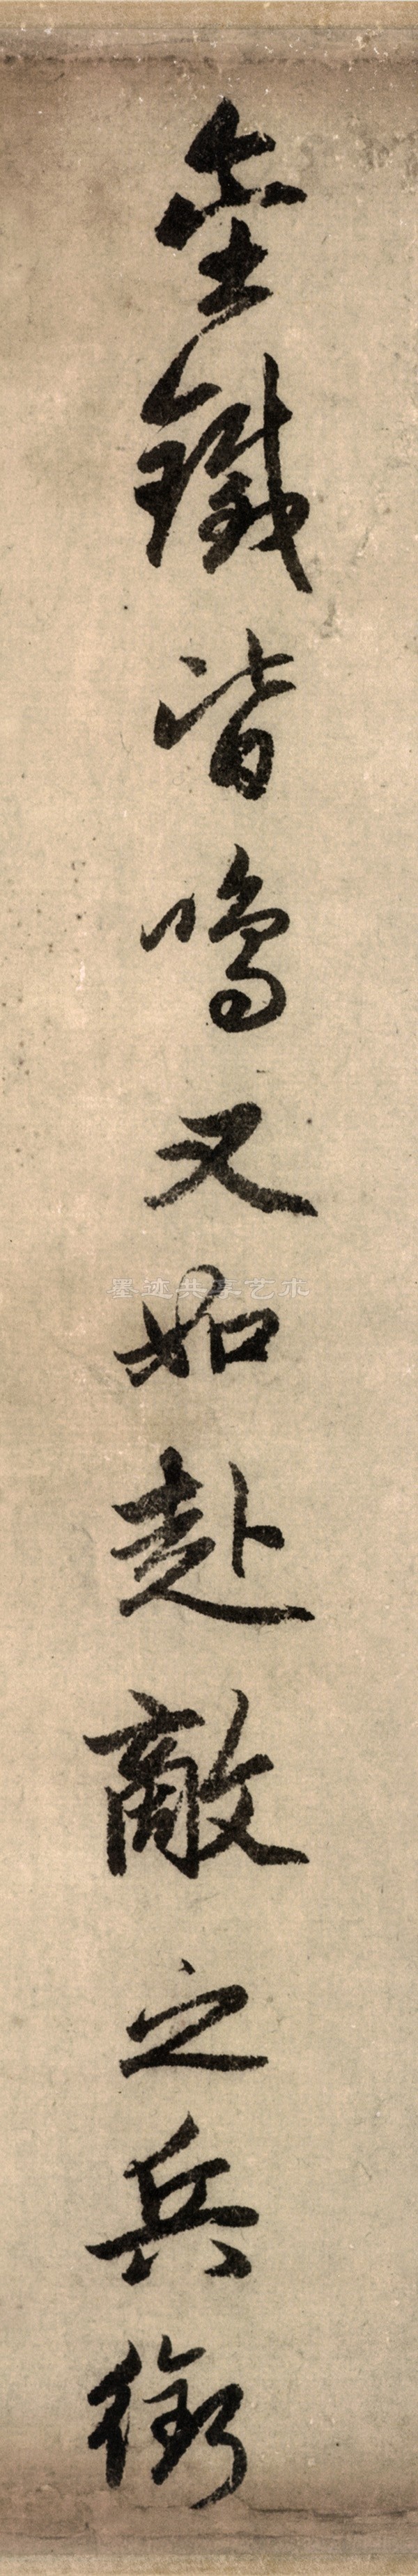 金鐵皆鳴又如赴敵之兵銜
墨迹共享艺术